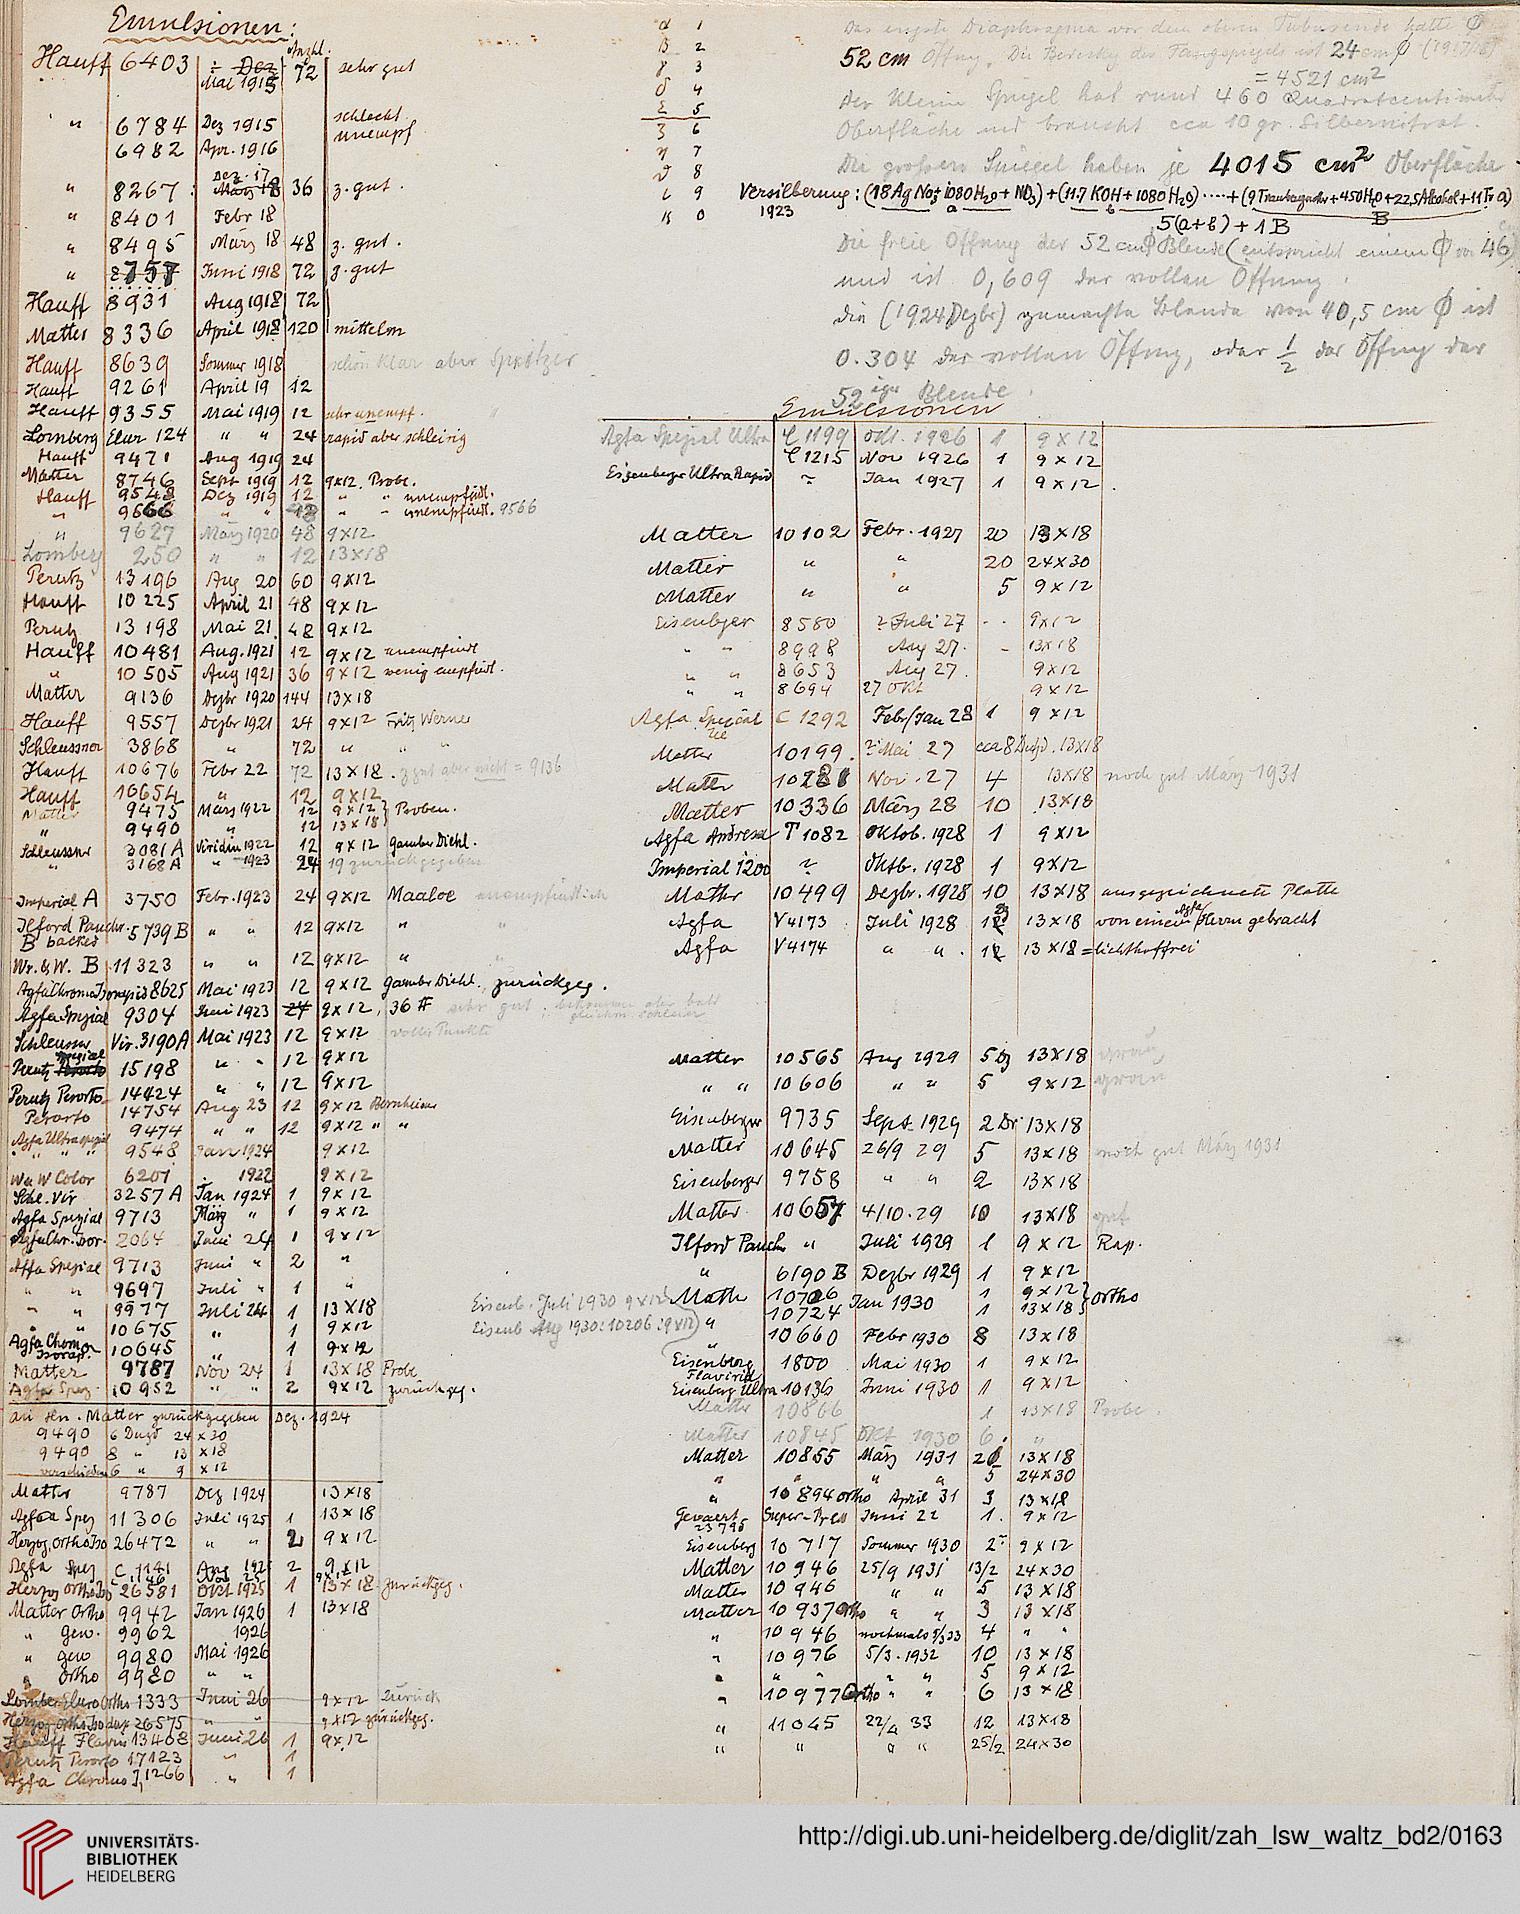 Emulsionen:
Anzhl.
Hauff 6403 : Dez Mai 1915 72 sehr gut
" 6784 Dez 1915 schlecht
6982 Apr. 1916 unempf
" 8267 Dez. 17 März 18 36 z. gut.
" 8401 Febr 18
" 8495 März 18 48 z. gut.
" 8757 Juni 1918 72 z. gut
Hauff 8931 Aug 1918 72
Matter 8336 April 1918 120 mittelm
Hauff 8639 Sommer 1918 schön klar aber Spritzer
Hauff 9261 April 19 12
Hauff 9355 Mai 1919 12 sehr unempf.
Lomberg Elur 124 " " 24 rapid aber schleirig
Hauff 9471 Aug 1919 24
Matter 8746 Sept 1919 12 9x12. Probe.
Hauff 9548 Dez 1919 12 " " unempfindl.
" 9666 " " 12 " " unempfindl. 9566
" 9627 März 1920 48 9x12
Lomberg 250 " " 12 13x18
Perutz 13196 Aug 20 60 9x12
Hauff 10225 April 21 48 9x12
Perutz 13198 Mai 21 48 9x12
Hauff 10481 Aug. 1921 12 9x12 unempfindl
" 10505 Aug 1921 36 9x12 wenig empfindl.
Matter 9136 Dezbr 1920 144 13x18
Hauff 9557 Dezbr 1921 24 9x12 Fritz Werner
Schleussner 3868 " 72 " " "
Hauff 10676 Febr 22 72 13x18. z gut aber nicht = 9136
Hauff 10654 " 12 9x12
Matter 9475 März 1922 12 9x12 } Proben.
" 9490 " 12 13x18
Schleussner 3081A Viridin 1922 12 9x12 Gambr Diehl.
" 3168A " 1923 24 19 zurückgegeben
Imperial A 3750 Febr. 1923 24 9x12 Maaloe unempfindlich
Ilford Panchr. B backed 5739B " " 12 9x12 " "
Wr. & W. B 11323 " " 12 9x12 "
Agfa Chromo Isorapid 8625 Mai 1923 12 9x12 Gambr Diehl. zurückgeg.
Agfa Spezial 9304 Juni 1923 24 9x12, 36 # sehr gut
Schleussner Vir. 3190A Mai 1923 12 9x12 voller Punkte
Perutz Spezial Perorto 15198 " " 12 9x12
Perutz Perorto 14424 " " 12 9x12
Perorto 14754 Aug 23 12 9x12 Bernheimer
Agfa Ultraspezial 9474 " " 12 9x12 " "
" " " 9548 Jan 1924 9x12
W u W Color 6201 1922 9x12
Schl. Vir 3257A Jan 1924 1 9x12
Agfa Spezial 9713 März " 1 9x12
Agfa Chr. Isor. 2064 Juni 24 1 9x12
Agfa Spezial 9713 Juni " 2 "
" " 9697 Juli " 1 "
" " 9977 Juli 24 1 13x18
" " 10675 " 1 9x12
Agfa Chromo Isorap. 10645 " 1 9x12
Matter 9787 Nov 24 1 13x18 Probe
Agfa Spez. 10952 " " 2 9x12 zurückgeg.
an Hn. Matter zurückgegeben Dez. 1924
9490 6 Dutzd 24 x 30
9490 8 " 13 x 18
verschieden 6 " 9 x 12
Matter 9787 Dez 1924 13x18
Agfa Spez 11306 Juli 1925 1 13x18
Herzog, Ortho Iso 26472 " " 2 9x12
Agfa Spez C. 1141 Aug 1925 2 9x12
Herzog Ortho Iso 26581 Okt 1925 1 13x18 zurückgeg.
Matter Ortho 9942 Jan 1926 1 13x18
" gew. 9962 1926
" gew 9980 Mai 1926
" Ortho 9980 " "
Lomberg Eluro Ortho 1333 Juni 26 9x12 zurück
Herzog Ortho Iso dux 26575 " " 9x12 zurückgeg.
Hauff Flavin 13408 Juni 26 1 9x12
Perutz Perorto 17123 " 1
Agfa Chromo I, 1266 " 1
α 1
β 2
γ 3
δ 4
ε 5
ζ 6
η 7
ϑ 8
ι 9
κ 0
Das engste Diaphragma vor dem oberen Tubusende hatte Φ
52 cm Öffnung. Die Bedeckg des Fangspiegels ist 24 cm Φ (1917/18)
= 4521 cm²
Der kleine Spiegel hat rund 460 Quadratcentimeter
Oberfläche und braucht cca 10 gr. Silbernitrat.
Die grossen Spiegel haben je 4015 cm² Oberfläche
Versilberung: (18 Ag NO3 + 1080 H2O + NO3) + (11.7 KOH + 1080 H2O) ····· + (9 Traubenzucker + 450 H2O + 22,5 Alcohol + 11 Tr a)
1923 a b B
5(a+b) + 1B
Die freie Öffnung der 52 cm Φ Blende (entspricht einem Φ von 46)
und ist 0,609 der vollen Öffnung.
die (1924 Dezbr) gemachte Blende von 40,5 cm Φ ist
0.304 der vollen Öffng, oder 1/2 der Öffng der
52iger Blende.
Emulsionen
Agfa Spezial Ultra C 1199 Okt. 1926 1 9x12
C 1215 Nov 1926 1 9x12
Eisenberger Ultra Rapid ~ Jan 1927 1 9x12
Matter 10102 Febr. 1927 20 13x18
Matter " " 20 24x30
Matter " " 5 9x12
Eisenbger 8580 ? Juli 27 - - 9x12
" " 8998 Aug 27. - 13x18
" " 8653 Aug 27. 9x12
" " 8694 27 Okt 9x12
Agfa Spezial C 1292 Febr/Jan 28 1 9x12
Matter 10199. ? Mai 27 cca 8 Dutzd. 13x18
Matter 10281 Nov. 27 4 13x18 noch gut März 1931
Matter 10336 März 28 10 13x18
Agfa Andresen T 1082 Oktob. 1928 1 9x12
Imperial 1200 ~ Oktb. 1928 1 9x12
Matter 10499 Dezbr. 1928 10 13x18 ausgezeichnete Platte
Agfa V4173 Juli 1928 12 13x18 von einem Agfa Herrn gebracht
Agfa V4174 " " . 12 13x18 = lichthoffrei
Matter 10565 Aug 1929 5 Dz 13x18 grau
" " 10606 " " 5 9x12 grau
Eisenberger 9735 Sept. 1929 2 Dz 13x18
Matter 10645 26/9 29 5 13x18 noch gut März 1931
Eisenberger 9758 " " 2 13x18
Matter 10657 4/10. 29 10 13x18 gut
Ilford Panchr " Juli 1929 1 9x12 Rap.
" 6190 B Dezbr 1929 1 9x12
Eisenb. Juli 1930 9x12 Matter 10706 Jan 1930 1 9x12 } Ortho
Eisenb Aug 1930: 10206: 9x12) " 10724 1 13x18
" 10660 Febr 1930 8 13x18
Eisenberg Flavirid 1800 Mai 1930 1 9x12
Eisenberg Ultra 10136 Juni 1930 1 9x12
Matter 10866 1 13x18 Probe.
Matter 10845 Okt 1930 6 "
Matter 10855 März 1931 20 13x18
" " " " 5 24x30
" 10894 ortho April 31 3 13x18
Gevaert 23795 Super-Press Juni 22 1. 9x12
Eisenberg 10717 Sommer 1930 2 9x12
Matter 10946 25/9 1931 13/2 24x30
Matter 10946 " " 5 13x18
Matter 10937 Ortho " " 3 13x18
" 10946 nochmals 5/3 33 4 " "
" 10976 5/3. 1932 10 13x18
" " " " " 5 9x12
" 10977 Ortho " " 6 13x18
" 11045 22/4 33 12 13x18
" " " " 25/2 24x30
UNIVERSITÄTS-
BIBLIOTHEK
HEIDELBERG
http://digi.ub.uni-heidelberg.de/diglit/zah_lsw_waltz_bd2/0163